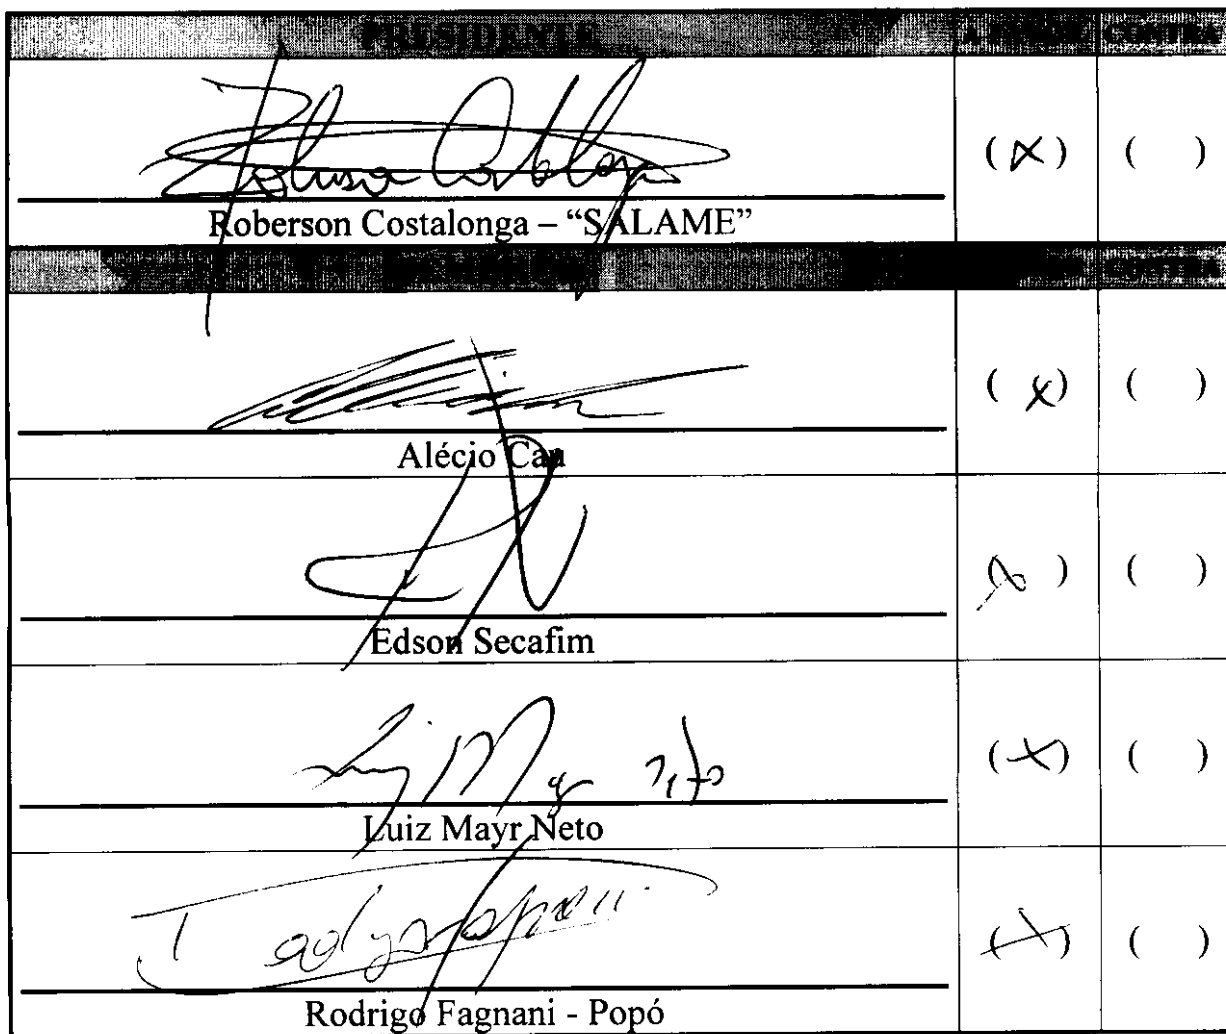 PRESIDENTE A FAVOR CONTRA
(X) ( )
Roberson Costalonga – “SALAME”
CONTRA
(X) ( )
Alécio Cau
(X) ( )
Edson Secafim
Luiz Mayr Neto
(X) ( )
Luiz Mayr Neto
(X) ( )
Rodrigo Fagnani - Popó